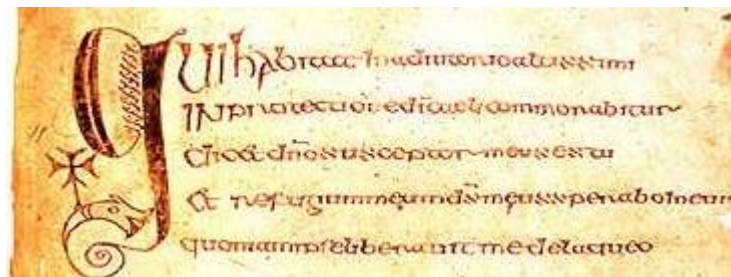 Qui habitat in adiutorio altissimi
IN protectione di caeli commorabitur
dicet dno susceptor meus es tu
et refugium meum ds meus sperabo in eum
quoniam ipse liberavit me de laqueo